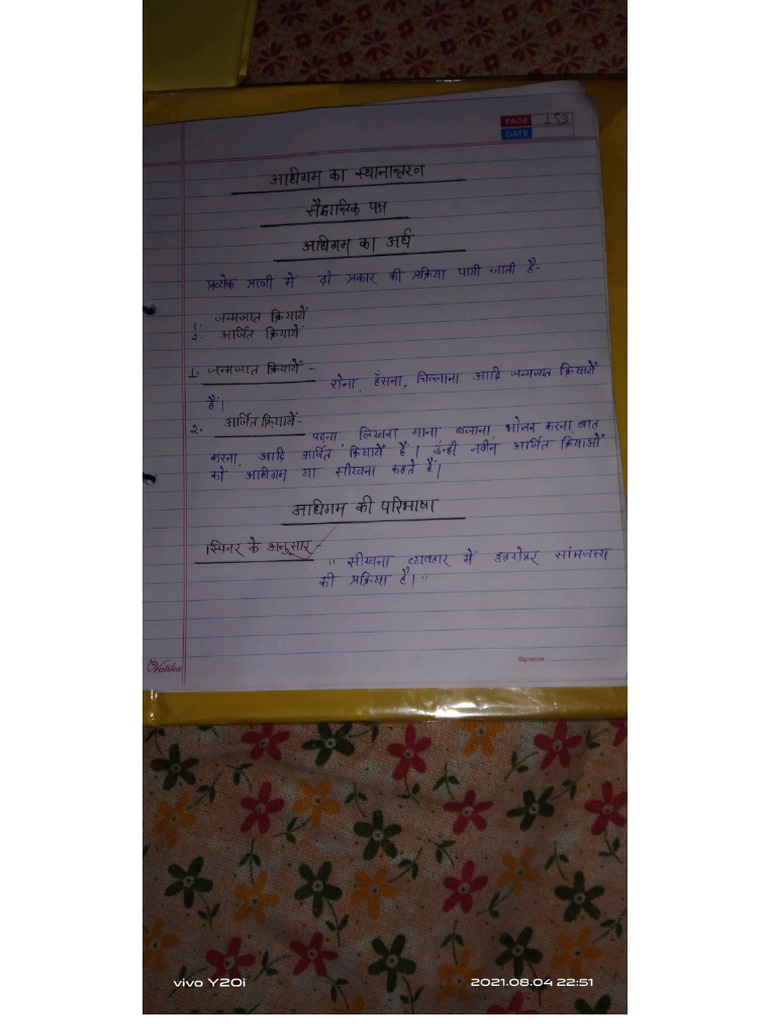 PAGE 159
DATE
अधिगम का स्थानान्तरण
सैद्धान्तिक पत्र
अधिगम का अर्थ
प्रत्येक प्राणी में दो प्रकार की प्रक्रिया पायी जाती है-
1. जन्मजात क्रियायें
2. अर्जित क्रियायें
1. जन्मजात क्रियायें - रोना, हँसना, चिल्लाना आदि जन्मजात क्रियायें
हैं।
2. अर्जित क्रियायें- पढ़ना, लिखना गाना बजाना, भोजन करना बात
करना, आदि अर्जित क्रियायें हैं। इन्ही नवीन अर्जित क्रियाओं
को अधिगम या सीखना कहते हैं।
अधिगम की परिभाषा
स्किनर के अनुसार -
" सीखना व्यवहार में उत्तरोत्तर सांमजस्य
की प्रक्रिया है। "
Signature
Vatika
vivo Y20i
2021.08.04 22:51